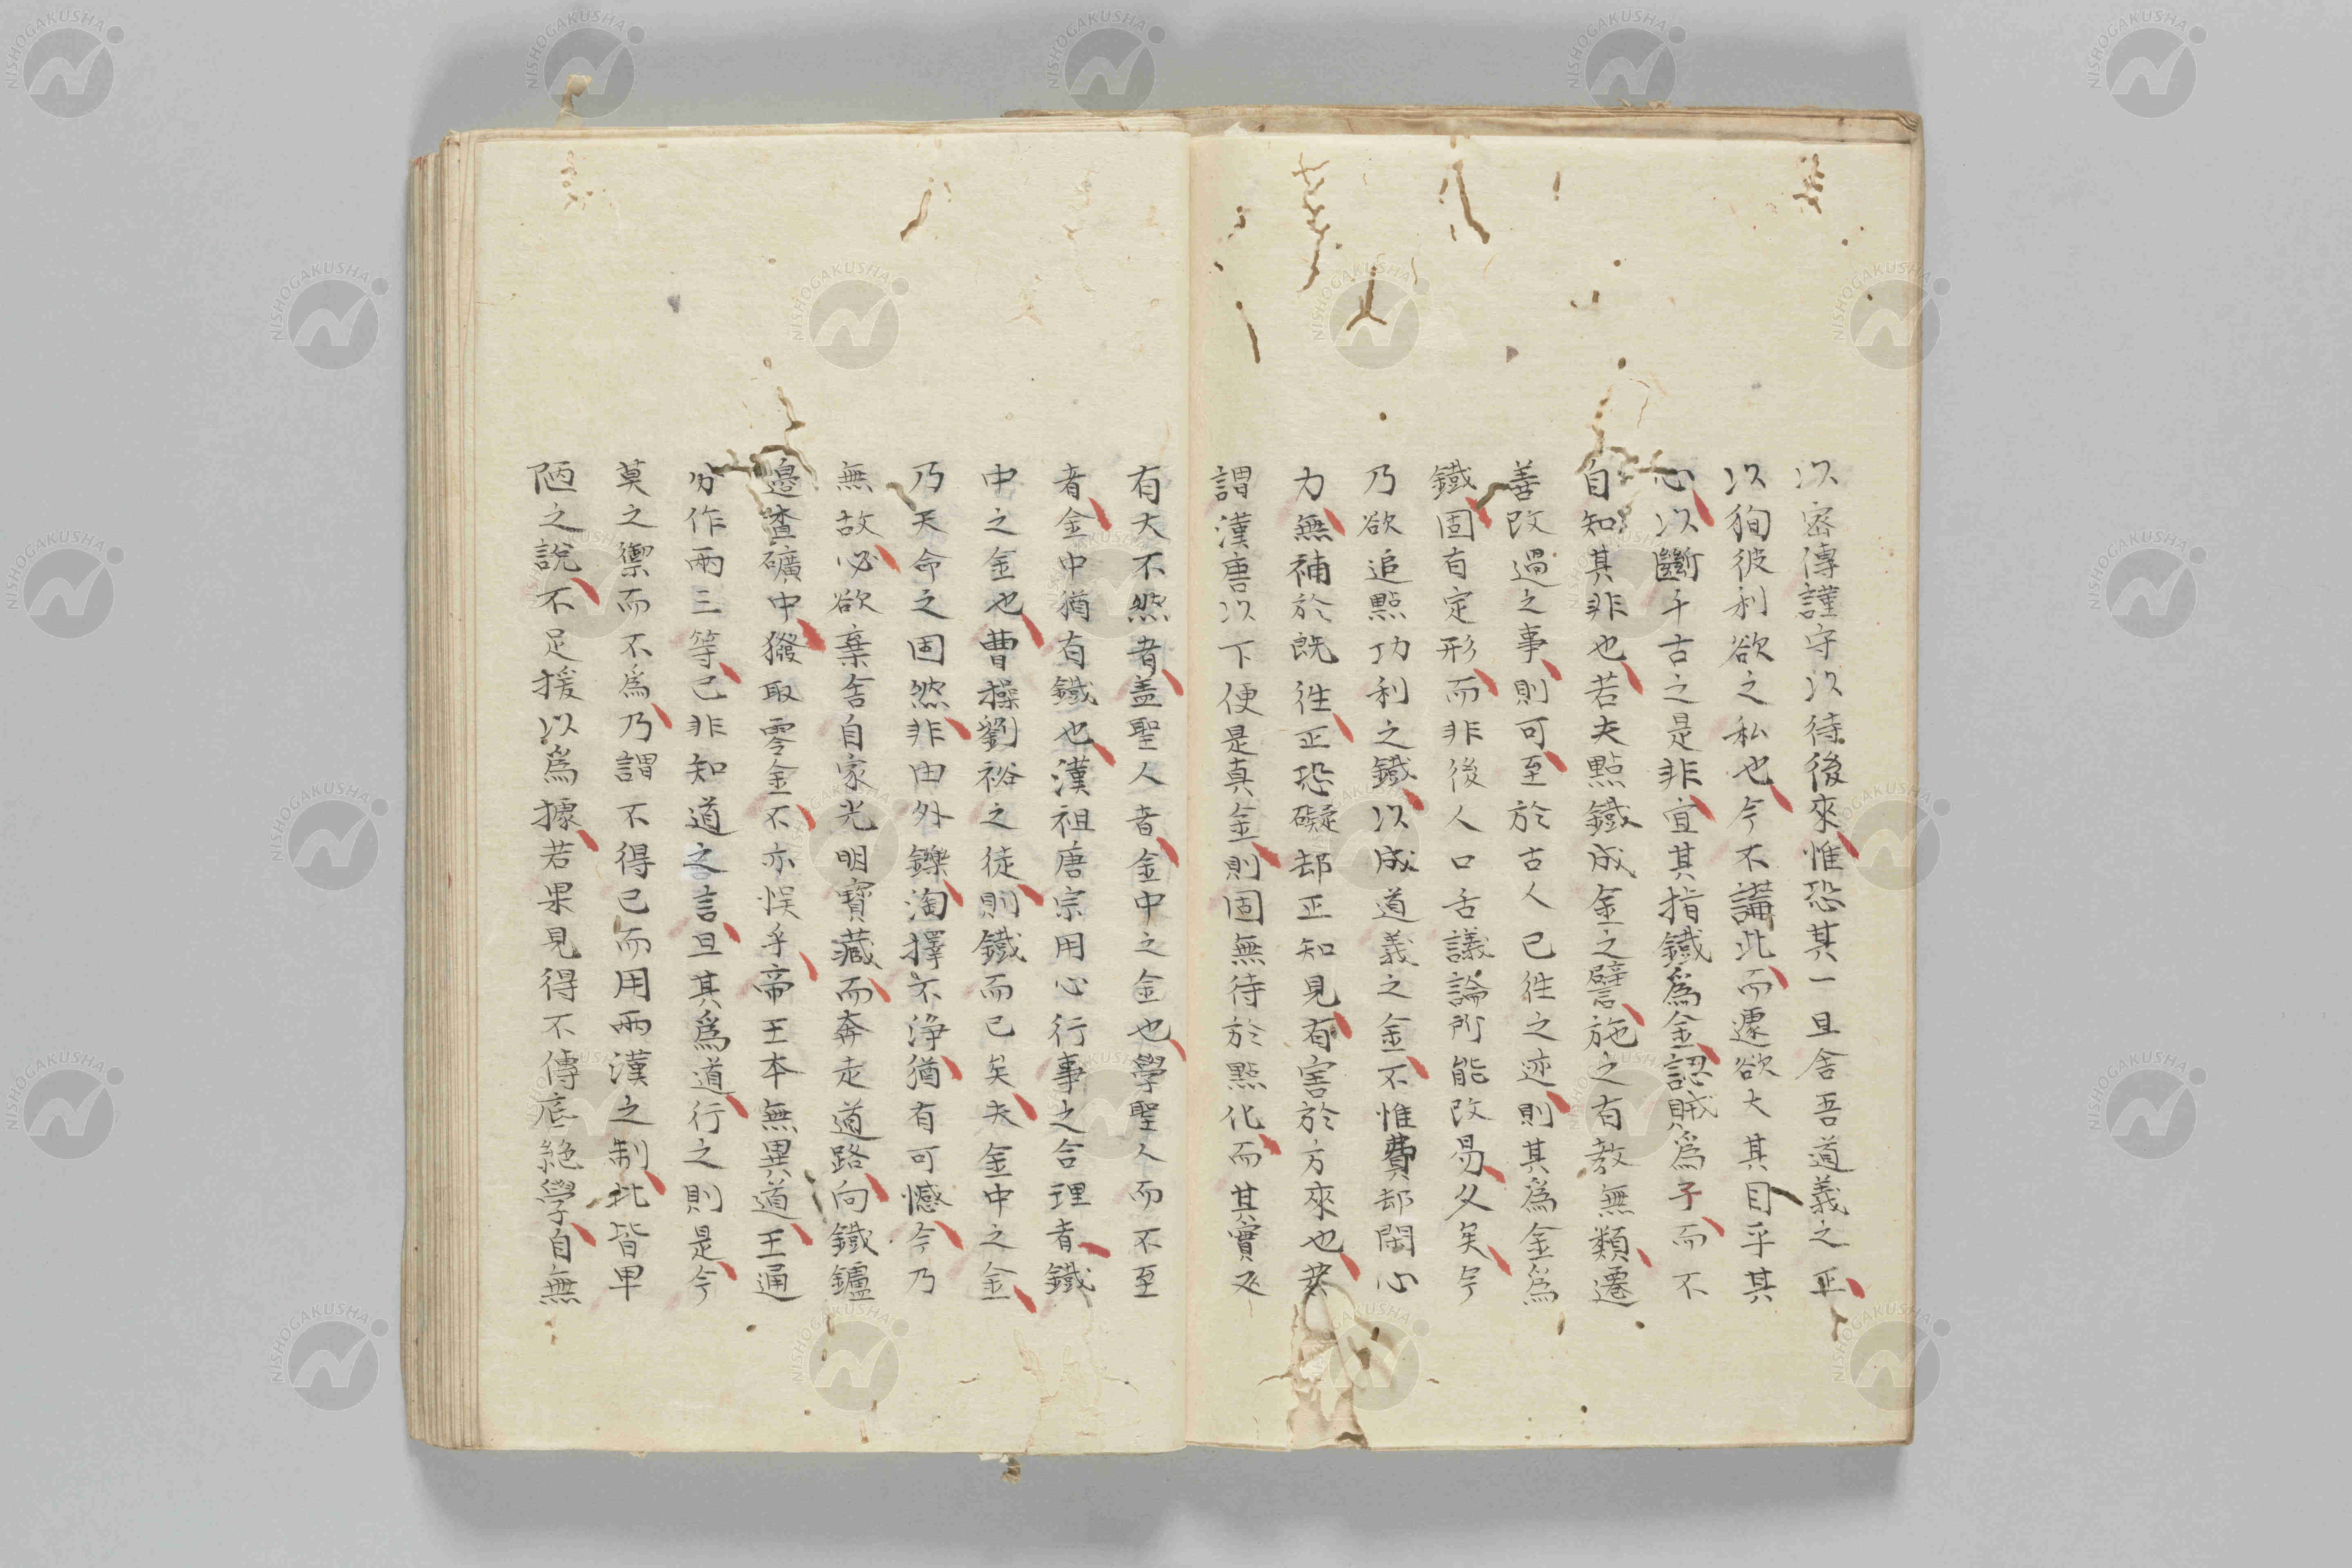 以密傳謹守以待後來惟恐其一旦舍吾道義之正
以狥彼利欲之私也今不講此而遽欲大其目乎其
心以斷千古之是非宜其指鐵爲金認賊爲子而不
自知其非也若夫點鐵成金之譬施之有教無類遷
善改過之事則可至於古人已徃之迹則其爲金爲
鐵固有定形而非後人口舌議論所能改易久矣今
乃欲追點功利之鐵以成道義之金不惟費却閑心
力無補於既徃正恐礙却正知見有害於方來也若
謂漢唐以下便是真金則固無待於點化而其實又
有大不然者盖聖人者金中之金也學聖人而不至
者金中猶有鐵也漢祖唐宗用心行事之合理者鐵
中之金也曹操劉裕之徒則鐵而已矣夫金中之金
乃天命之固然非由外鑠淘擇不淨猶有可憾今乃
無故必欲棄舍自家光明寶藏而奔走道路向鐵鑪
邉渣礦中撥取零金不亦悮乎帝王本無異道王通
分作兩三等已非知道之言且其爲道行之則是今
莫之禦而不爲乃謂不得已而用兩漢之制此皆卑
陋之說不足援以爲據若果見得不傳底絶學自無
NISHOGAKUSHA